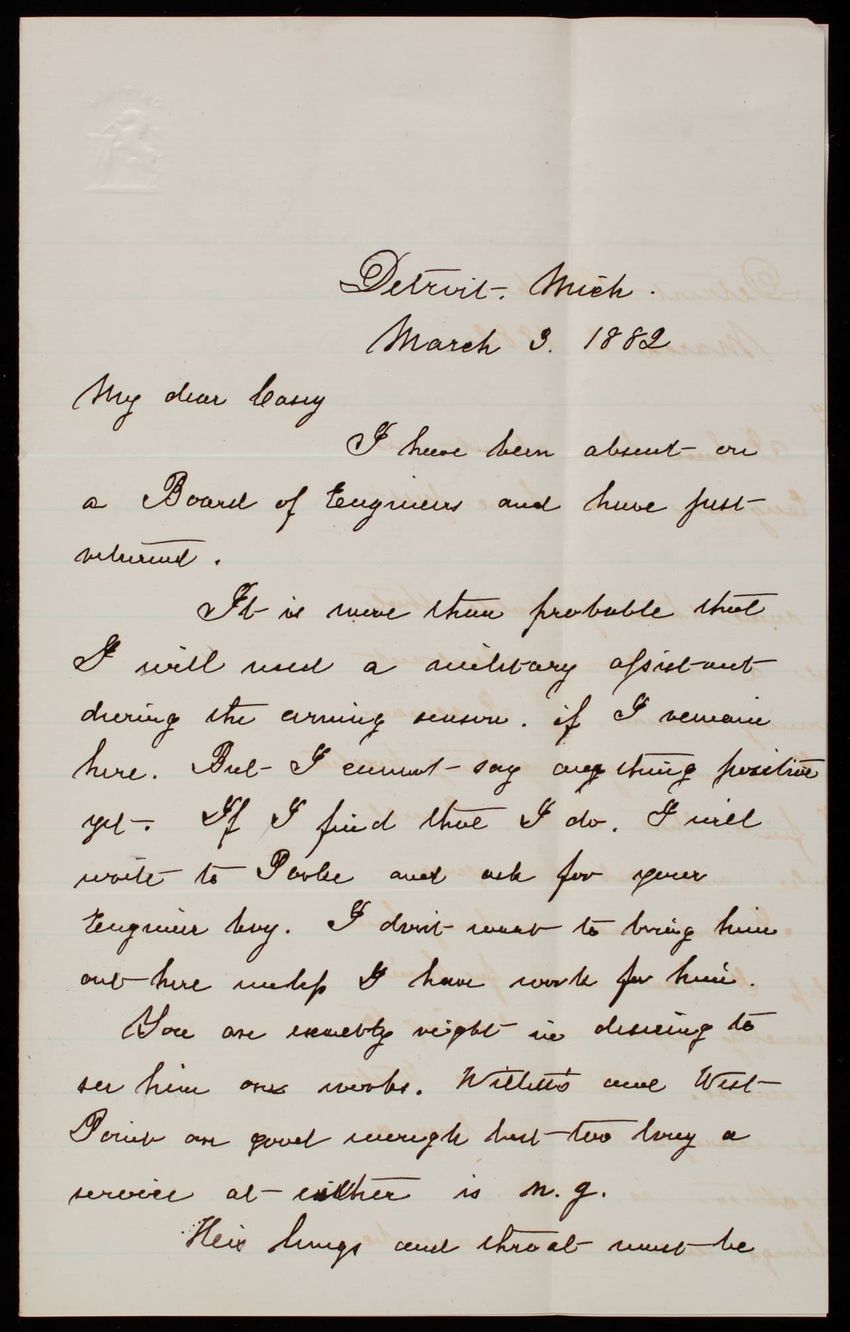 Detroit. Mich.
March 3. 1882
My dear Casey
I have been absent on
a Board of Engineers and have just
returned.
It is more than probable that
I will need a military assistant
during the coming season. if I remain
here. But I cannot say any thing positive
yet. If I find that I do. I will
write to and ask for your
Engineer boy. I don't want to bring him
out here unless I have work for him.
You are exactly right in desiring to
see him on works. Willett's and West
Point are good enough but too long a
service at either is n.g.
His lungs and throat must be